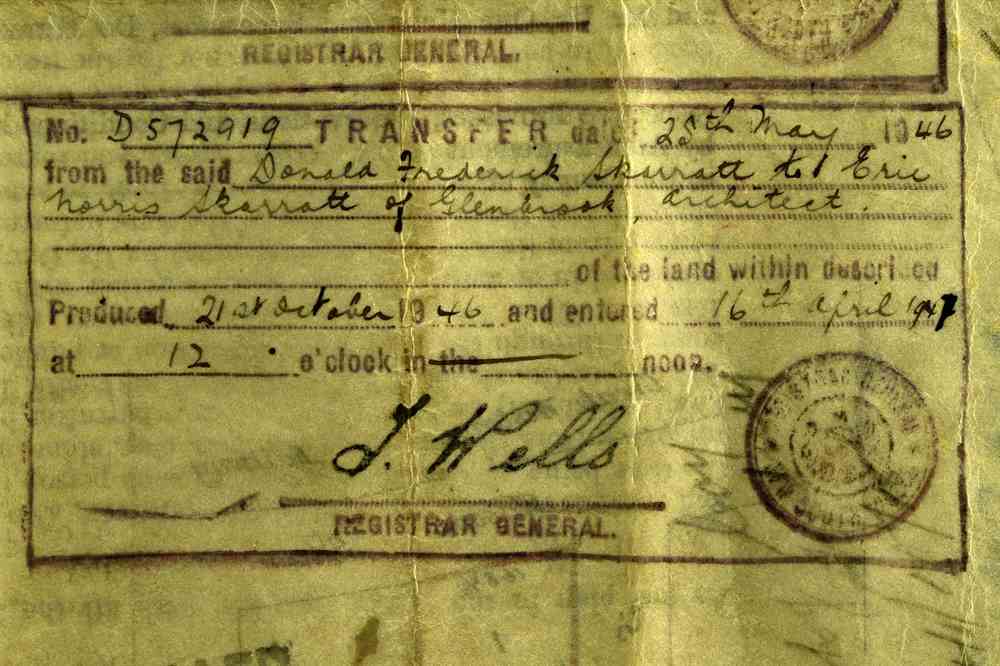 REGISTRAR GENERAL.
No. D572919 TRANSFER dated 28th May 1946
from the said Donald Frederick Skarratt to Eric
Norris Skarratt of Glenbrook, Architect.
of the land within described
Produced 21st October 1946 and entered 16th April 1947
at 12 o'clock in the noon.
J. Wells
REGISTRAR GENERAL.